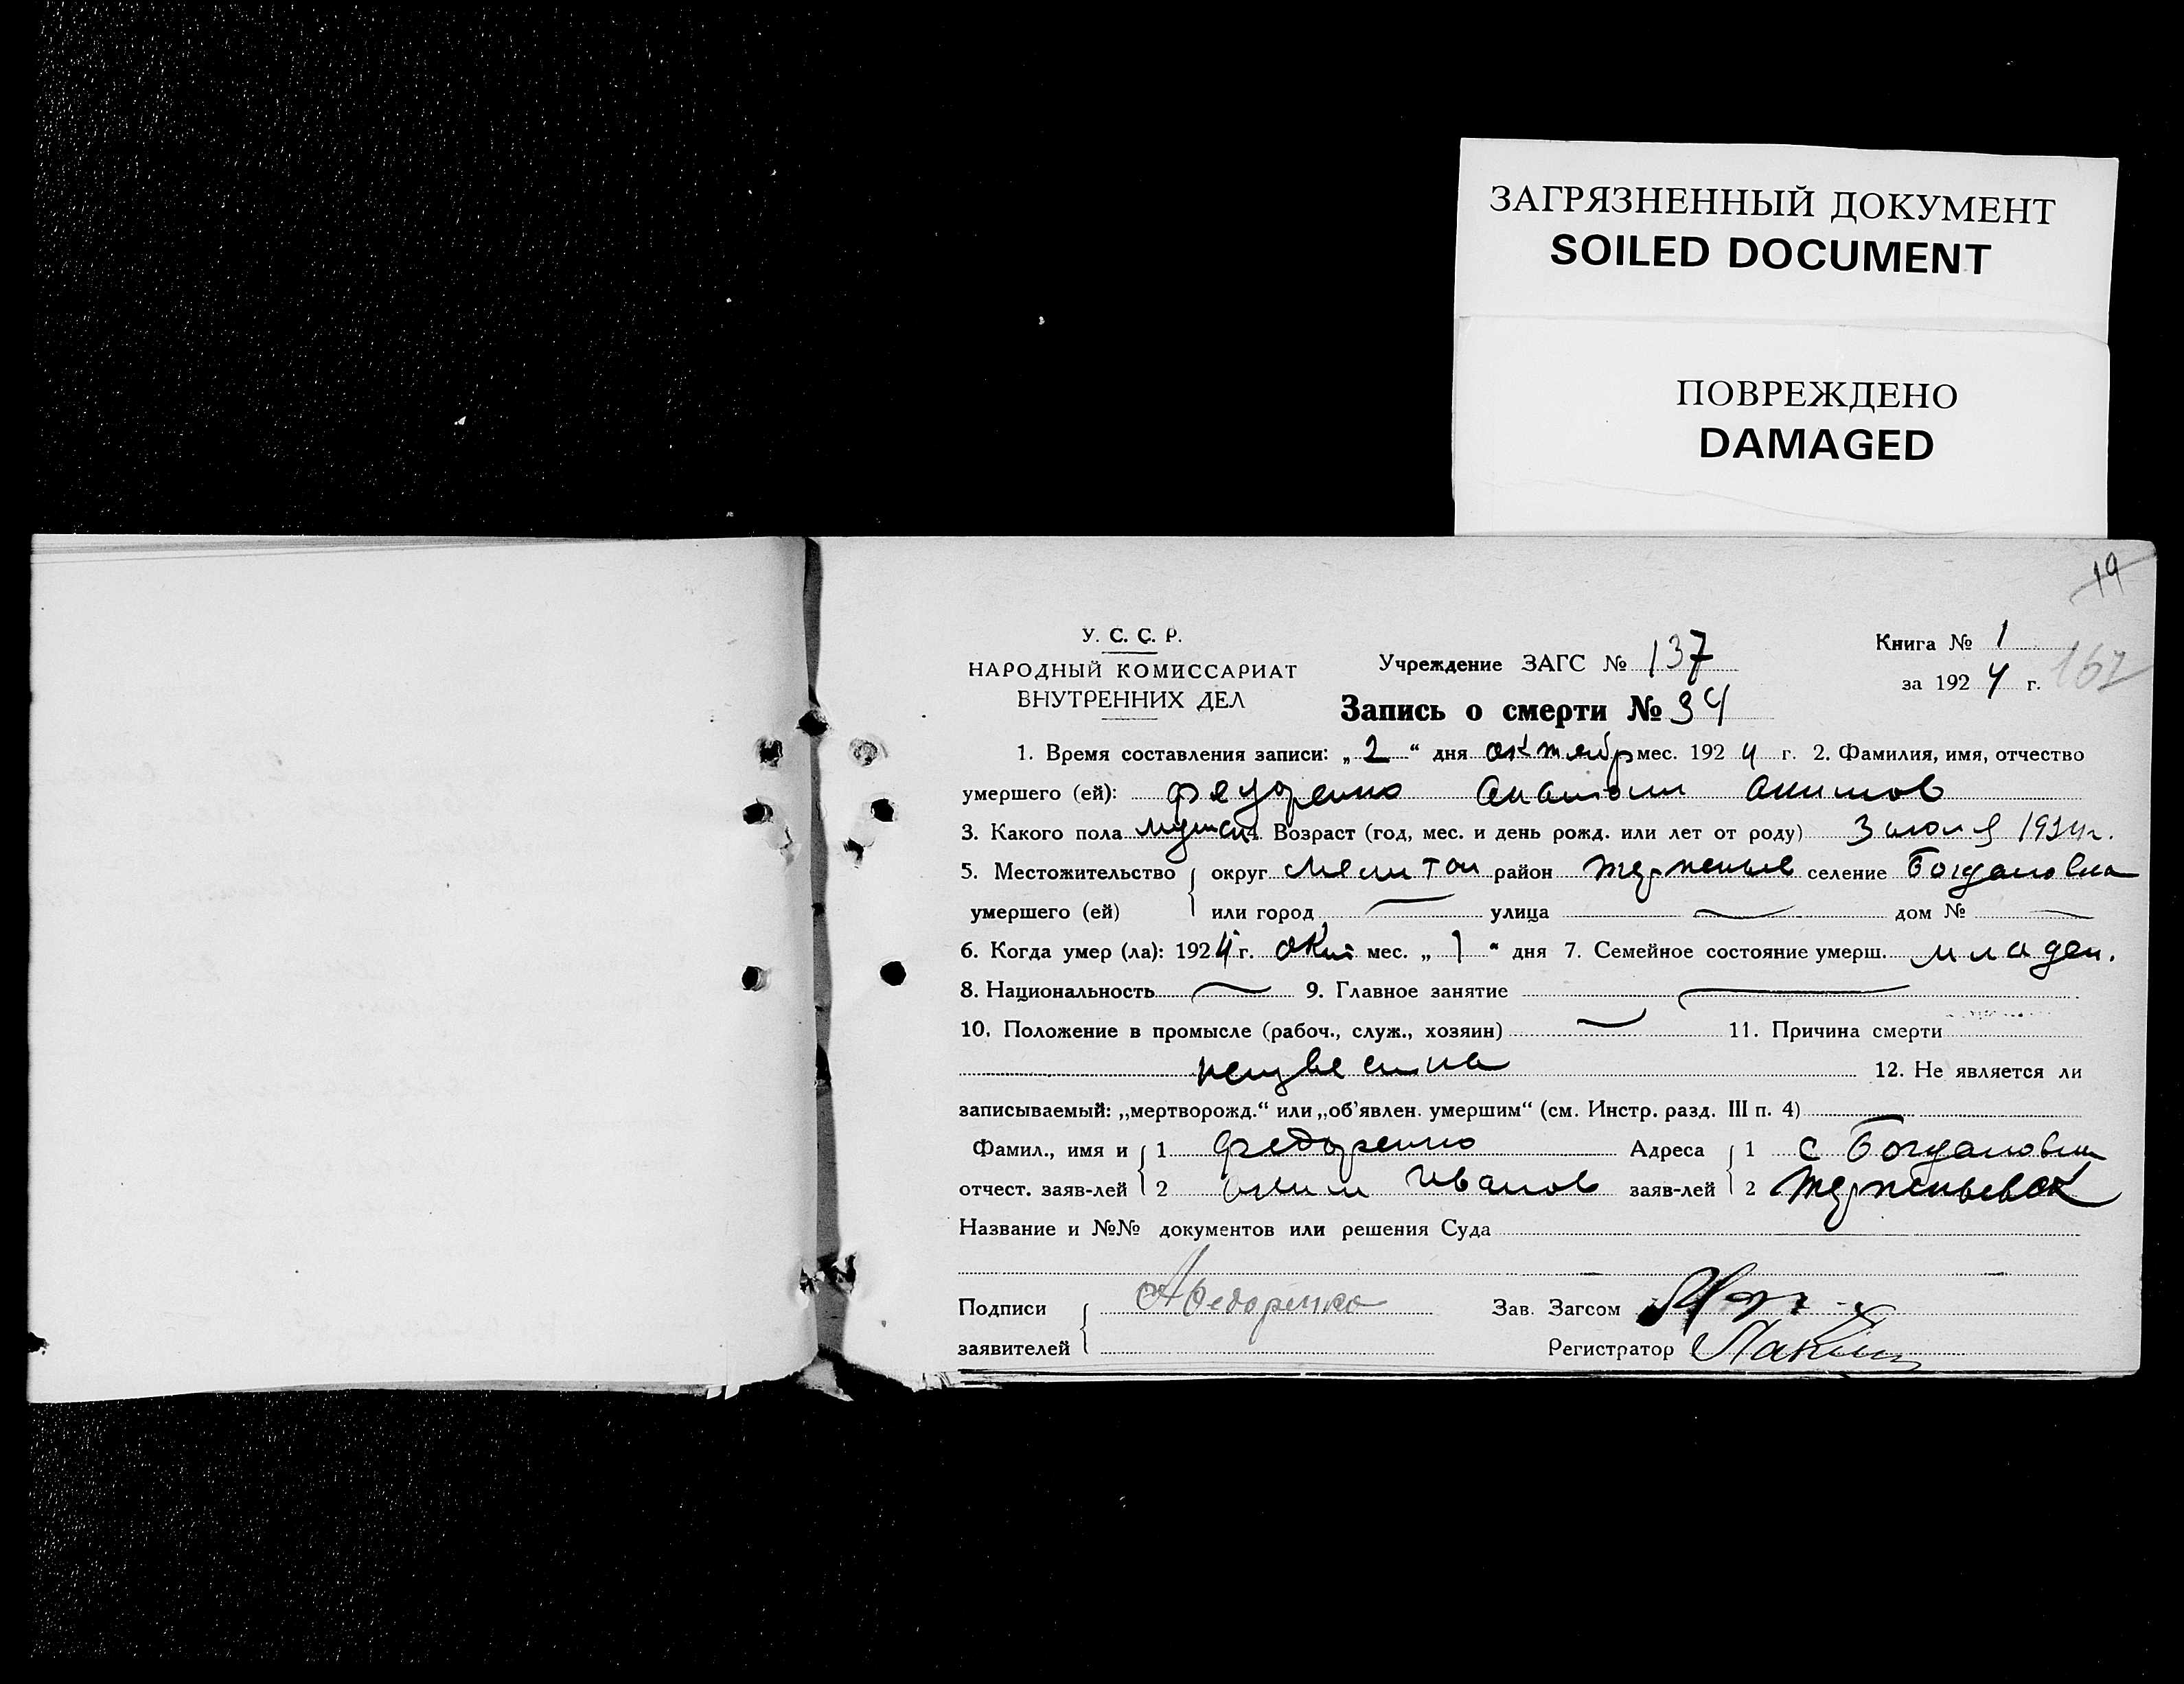 ЗАГРЯЗНЕННЫЙ ДОКУМЕНТ
SOILED DOCUMENT
ПОВРЕЖДЕНО
DAMAGED
19
У. С. С. Р.
НАРОДНЫЙ КОМИССАРИАТ
ВНУТРЕННИХ ДЕЛ
Учреждение ЗАГС № 137
Запись о смерти № 34
Книга № 1
за 1924 г.
167
1. Время составления записи: „2“ дня октябр мес. 1924 г. 2. Фамилия, имя, отчество
умершего (ей): Федоренко Анатоли Акимов
3. Какого пола мужск. Возраст (год, мес. и день рожд. или лет от роду) 3 1924г.
5. Местожительство умершего (ей) округ Мелитоп район селение Богдановка
или город — улица — дом № —
6. Когда умер (ла): 1924 г. окт мес. „1“ дня 7. Семейное состояние умерш. младен.
8. Национальность — 9. Главное занятие —
10. Положение в промысле (рабоч., служ., хозяин) — 11. Причина смерти
неизвестна 12. Не является ли
записываемый: „мертворожд.“ или „об’явлен. умершим“ (см. Инстр. разд. III п. 4)
Фамил., имя и 1 Федоренко Адреса 1 с Богдановки
отчест. заяв-лей 2 Аким Иванов заяв-лей 2
Название и №№ документов или решения Суда
Подписи АФедоренко Зав. Загсом
заявителей Регистратор